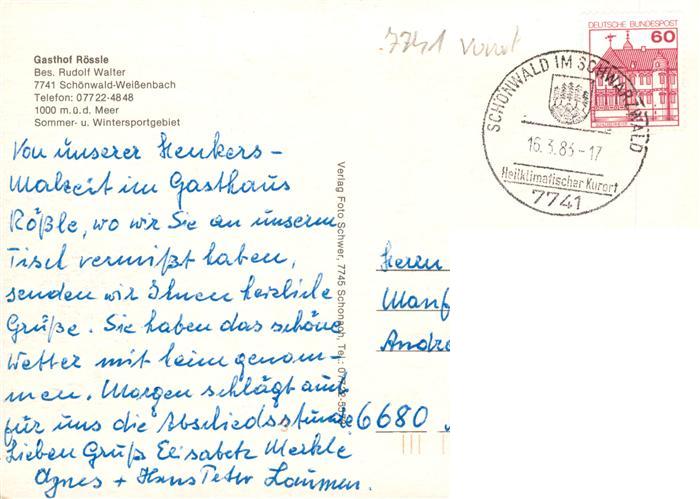 Gasthof Rössle
Bes. Rudolf Walter
7741 Schönwald-Weißenbach
Telefon: 07722-4848
1000 m.ü.d. Meer
Sommer- u. Wintersportgebiet
Von unserer Henkers-
Malzeit im Gasthaus
Rößle, wo wir Sie an unserm
Tisch vermißt haben,
senden wir Ihnen herzliche
Grüße. Sie haben das schöne
Wetter mit heim genom-
men. Morgen schlägt auch
für uns die Abschiedsstunde
Lieben Gruß Elisabeth Merkle
Agnes + Hans Peter Laumen.
Verlag Foto Schwer, 7745 Schonach, Tel.:
7741
DEUTSCHE BUNDESPOST
60
SCHÖNWALD IM SCHWARZWALD
16.3.83-17
Heilklimatischer Kurort
7741
Herrn
Manf
Andre
6680